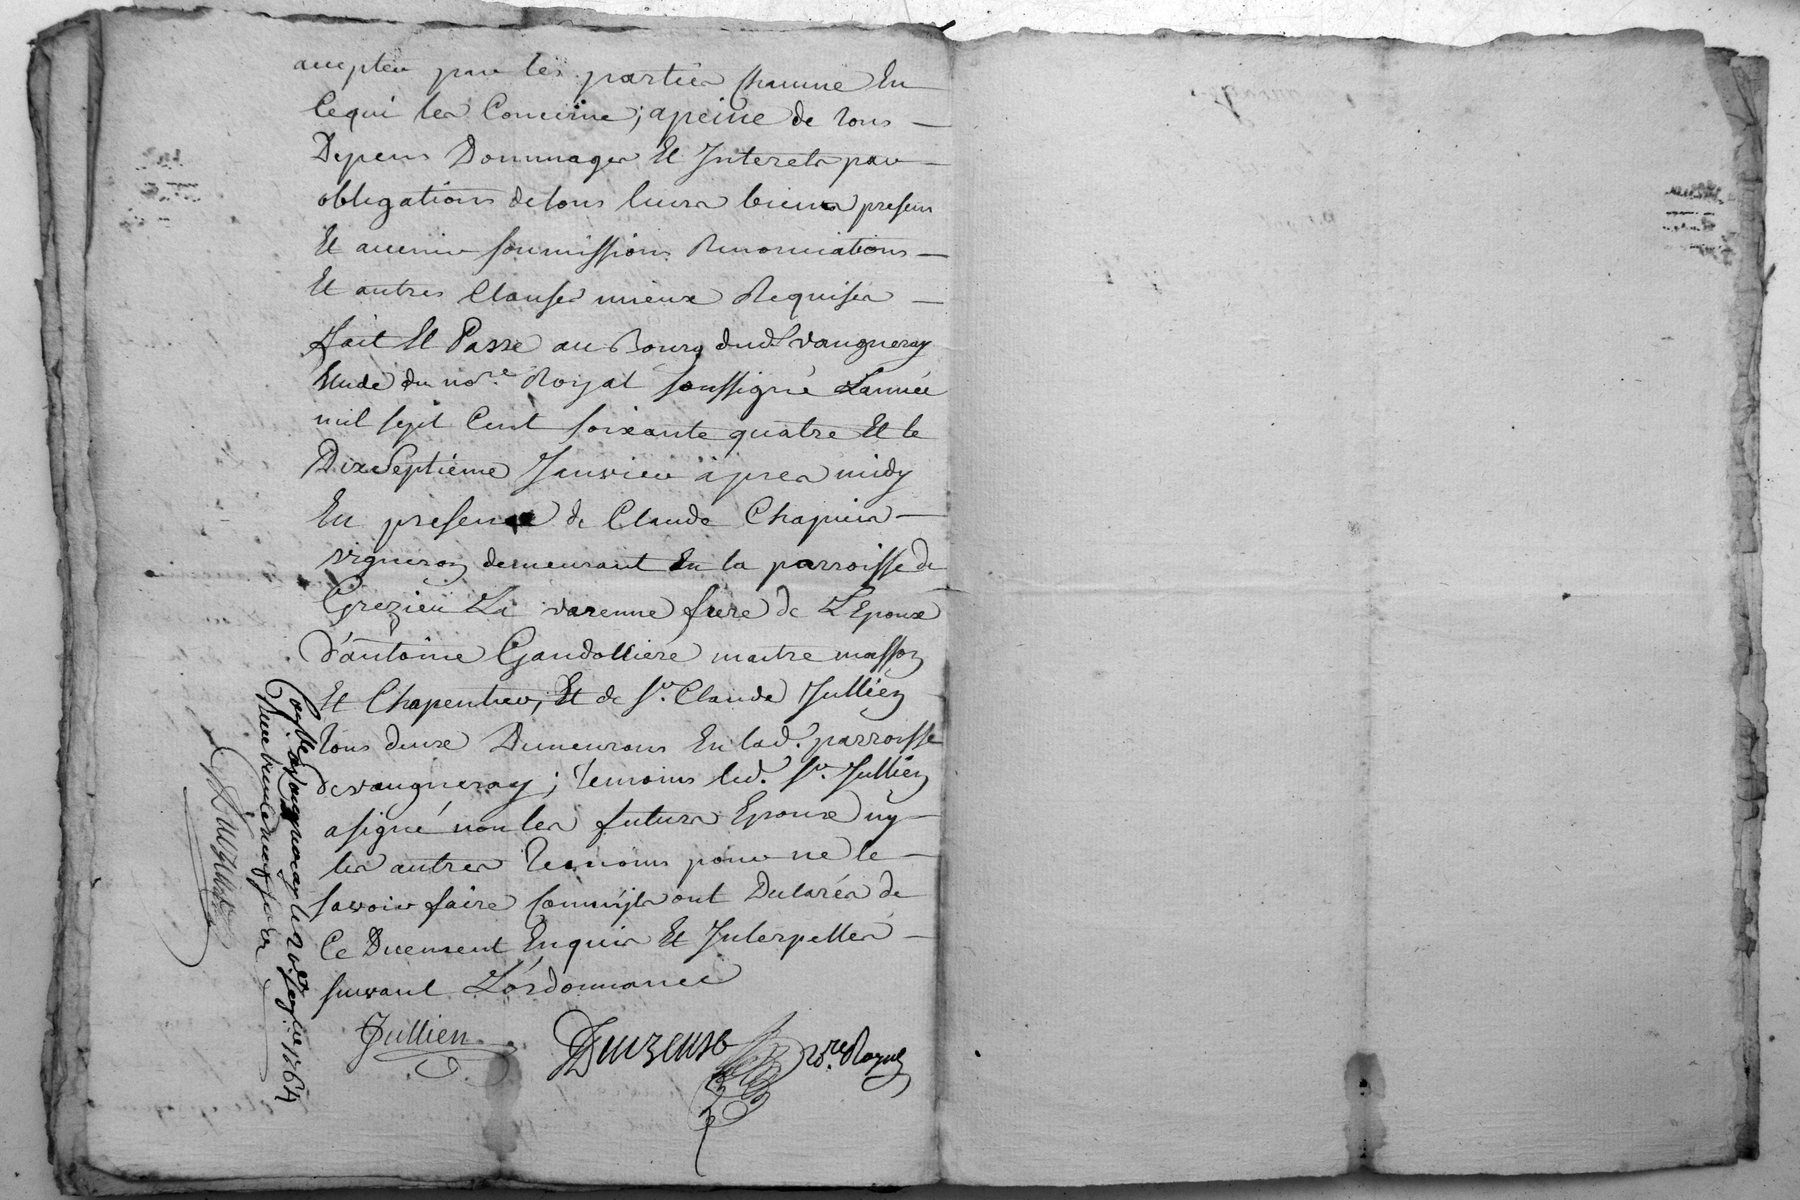 accepteé par les parties chacune En
Cequi les Concerne, apeine de tous
Depens Dommages Et Interets par
obligations detous leurs biens presens
Et avenir soumissions Renonciations
Et autres Clauses mieux Requises
fait Et Passé au Bourg dud. vaugneray
Etude du nore. Royal soussigné L'année
mil sept Cent soixante quatre Et le
DixSeptiéme Janvier aprés midy
En presence de Claude Chapuis
vigneron demeurant En la parroisse de
Grezieu La varenne frere de L'Epouse
d'antoine Gandolliere maitre masson
Et Chapentier, Et de Sr. Claude Jullien
tous deux Demeurans En lad. parroisse
devaugneray; temoins led. Sr. Jullien
asigné non les futurs Epoux ny
les autres temoins pour ne le
savoir faire Comm'jls ont Declarés de
Ce Duement Enquis Et Interpellés
suivant L'ordonnance
Jullien
nore. Royal
vaugneray le 1764